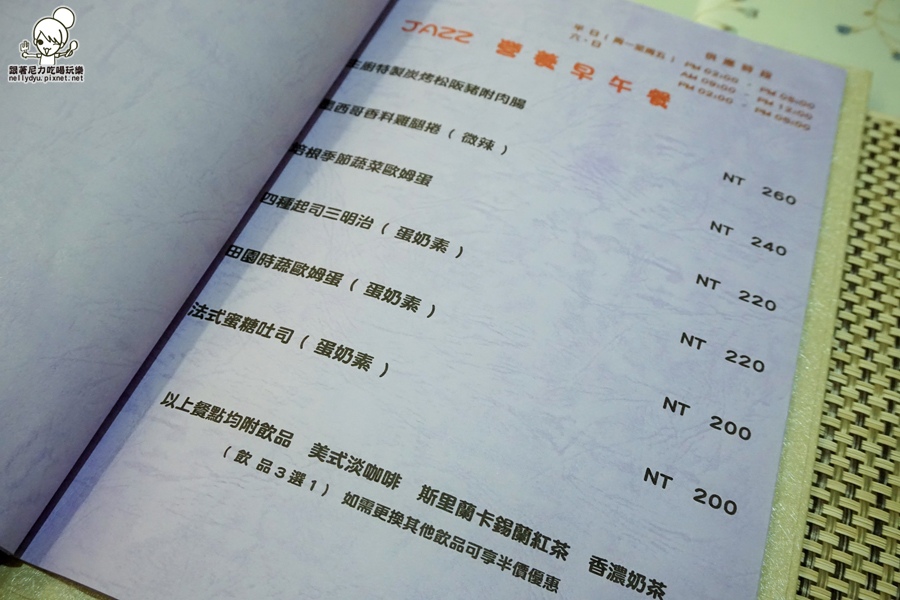 跟著尼力吃喝玩樂
nellydyu.pixnet.net
JAZZ 營養早午餐
供應時段
平日(周一至周五) PM 02:00 - PM 05:00
六、日 AM 09:00 - PM 12:00
PM 02:00 - PM 05:00
主廚特製炭烤松阪豬附肉腸 NT 260
墨西哥香料雞腿捲(微辣) NT 240
培根季節蔬菜歐姆蛋 NT 220
四種起司三明治(蛋奶素) NT 220
田園時蔬歐姆蛋(蛋奶素) NT 200
法式蜜糖吐司(蛋奶素) NT 200
以上餐點均附飲品 美式淡咖啡 斯里蘭卡錫蘭紅茶 香濃奶茶
(飲品3選1) 如需更換其他飲品可享半價優惠